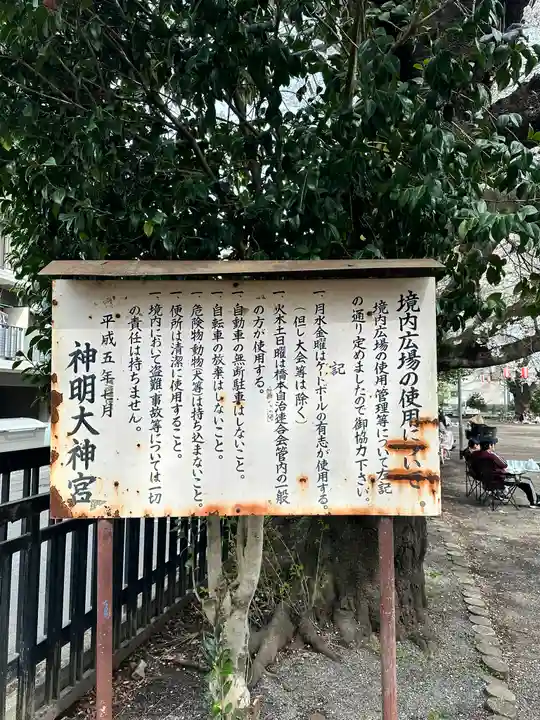 境内広場の使用について
境内広場の使用、管理等について左記
の通り定めましたので御協力下さい。
記
一、月水金曜はゲートボールの有志が使用する。
(但し大会等は除く)
一、火木土日曜は橋本自治連合会管内の一般
の方が使用する。
一、自動車の無断駐車はしないこと。
一、自転車の放棄はしないこと。
一、危険物、動物(犬等)は持ち込まないこと。
一、便所は清潔に使用すること。
一、境内において盗難、事故等については一切
の責任は持ちません。
平成五年 月
神明大神宮